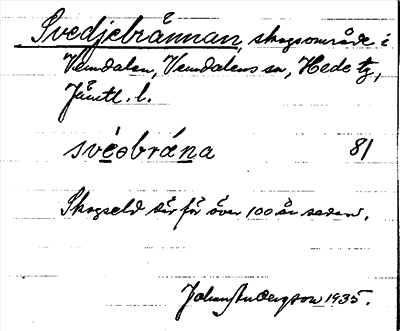 Svedjebrännan, skogsområde i
Vemdalen, Vemdalens sn, Hede tg,
Jämtl. l.
svèobrána 81
Skogseld där för över 100 år sedan.
Johan Anderson 1935.